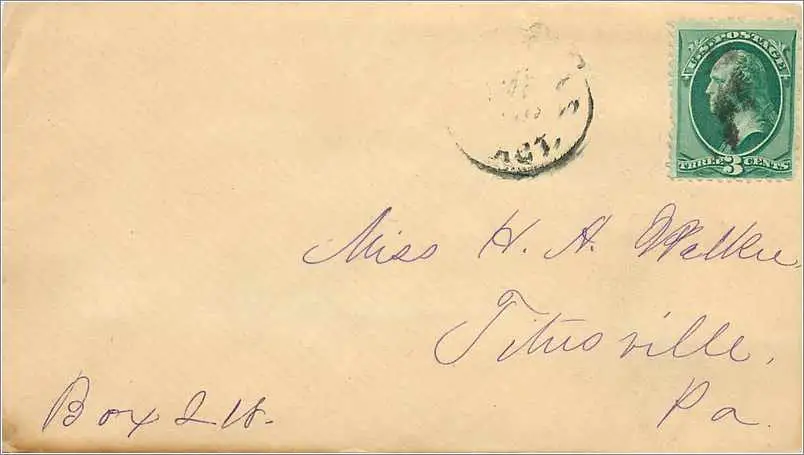 U.S. POSTAGE
THREE 3 CENTS
Miss H. A. Walker
Titusville,
Pa.
Box